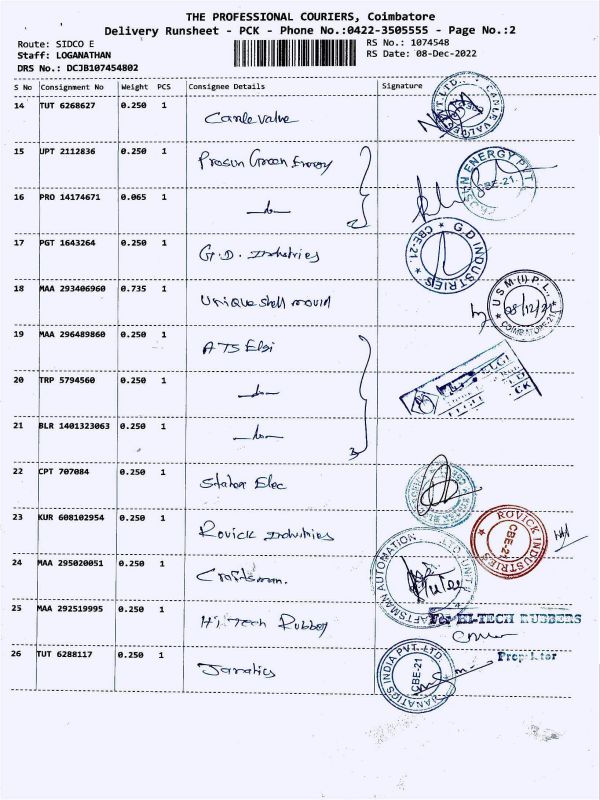 THE PROFESSIONAL COURIERS, Coimbatore
Delivery Runsheet - PCK - Phone No.:0422-3505555 - Page No.:2
Route: SIDCO E RS No.: 1074548
Staff: LOGANATHAN RS Date: 08-Dec-2022
DRS No.: DCJB107454802
S No Consignment No Weight PCS Consignee Details Signature
14 TUT 6268627 0.250 1 Canle Valve
15 UPT 2112836 0.250 1 Prosun Green Energy
16 PRO 14174671 0.065 1
17 PGT 1643264 0.250 1 G.D. Industries
G.D INDUSTRIES ★ CBE-21. ★
18 MAA 293406960 0.735 1 Unique shell mould
U S M (I) P. L., COIMBATORE-21
19 MAA 296489860 0.250 1 ATS Elgi
20 TRP 5794560 0.250 1
21 BLR 1401323063 0.250 1
22 CPT 707084 0.250 1 Stator Elec
23 KUR 608102954 0.250 1 Rovick Industries
ROVICK INDUSTRIES CBE-21
24 MAA 295020051 0.250 1 Craftsman.
CRAFTSMAN AUTOMATION
25 MAA 292519995 0.250 1 Hi. Tech Rubber
For HI-TECH RUBBERS
26 TUT 6288117 0.250 1 Janatics
JANATICS INDIA PVT. LTD. CBE-21